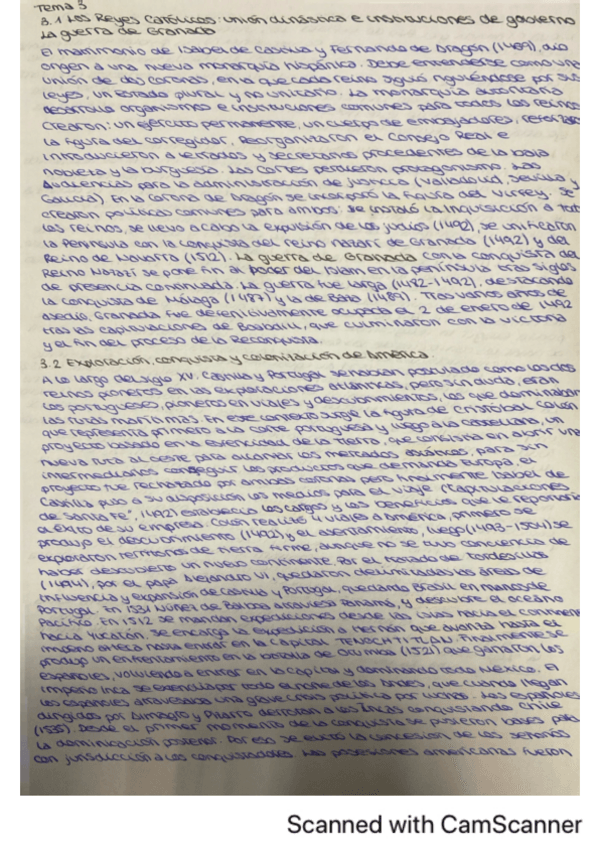 Tema 3
3.1 Los Reyes Católicos: unión dinástica e instituciones de gobierno
La guerra de Granada
El matrimonio de Isabel de Castilla y Fernando de Aragón (1469), dio
origen a una nueva monarquía hispánica. Debe entenderse como una
unión de dos coronas, en la que cada reino siguió rigiéndose por sus
leyes, un estado plural y no unitario. La monarquía autoritaria
desarrolló organismos e instituciones comunes para todos los reinos
Crearon: un ejército permanente, un cuerpo de embajadores,
la figura del corregidor, Reorganizaron el Consejo Real e
introdujeron a letrados y secretarios procedentes de la baja
nobleza y la burguesía. Las Cortes perdieron protagonismo. Las
Audiencias para la administración de justicia (Valladolid, Sevilla y
Galicia) En la Corona de Aragón se incorporó la figura del Virrey. Se
crearon políticas comunes para ambos: se instauló la Inquisición a
los reinos, se llevó a cabo la expulsión de los judíos (1492), se unificaron
la Península con la conquista del reino nazarí de Granada (1492) y del
Reino de Navarra (1512). La guerra de Granada con la conquista del
Reino Nazarí se pone fin al poder del Islam en la península tras siglos
de presencia continuada. La guerra fue larga (1482-1492), destacando
la conquista de Málaga (1487) y la de Baza (1489). Tras varios años de
asedio, Granada fue definitivamente ocupada el 2 de enero de 1492
tras las capitulaciones de Boabdil, que culminaron con la victoria
y el fin del proceso de la Reconquista.
3.2 Exploración, conquista y colonización de América.
A lo largo del siglo XV, Castilla y Portugal se habían postulado como los dos
reinos pioneros en las exploraciones atlánticas, pero sin duda, eran
los portugueses, pioneros en viajes y descubrimientos, los que dominaban
las rutas marítimas. En este contexto surge la figura de Cristóbal Colón
que representa primero a la corte portuguesa y luego a la castellana, un
proyecto basado en la esfericidad de la tierra, que consistía en abrir una
nueva ruta al oeste para alcanzar los mercados asiáticos, para sin
intermediarios conseguir los productos que demanda Europa, el
proyecto fue rechazado por ambas coronas pero finalmente Isabel de
Castilla puso a su disposición los medios para el viaje ("Capitulaciones
de Santa Fe", 1492) establecía los cargos y los beneficios que le reportaría
el éxito de su empresa. Colón realizó 4 viajes a América, primero se
produjo el descubrimiento (1492) y el asentamiento, luego (1493-1504) se
exploraron territorios de tierra firme, aunque no se tuvo conciencia de
haber descubierto un nuevo continente. Por el tratado de Tordesillas
(1494), por el papa Alejandro VI, quedaron delimitadas las áreas de
influencia y expansión de Castilla y Portugal, quedando Brasil en manos de
Portugal. En 1531 Núñez de Balboa atraviesa Panamá, y descubre el océano
Pacífico. En 1512 se mandan expediciones desde las islas hacia el continente
hacia Yucatán. Se encarga la expedición a Hernán que avanza hasta el
imperio azteca hasta entrar en la capital TENOCHTITLAN. Finalmente se
produjo un enfrentamiento en la batalla de Otumba (1521) que ganaron los
españoles, volviendo a entrar en la capital y dominando todo México. El
imperio Inca se extendía por todo el norte de los Andes, que cuando llegan
los españoles atravesaba una grave crisis política por luchas. Los españoles
dirigidos por Almagro y Pizarro derrotan a los Incas conquistando Chile
Desde el primer momento de la conquista se pusieron bases para
la dominación posterior. Por eso se evitó la concesión de los señoríos
con jurisdicción a los conquistadores. Las posesiones americanas fueron
Scanned with CamScanner